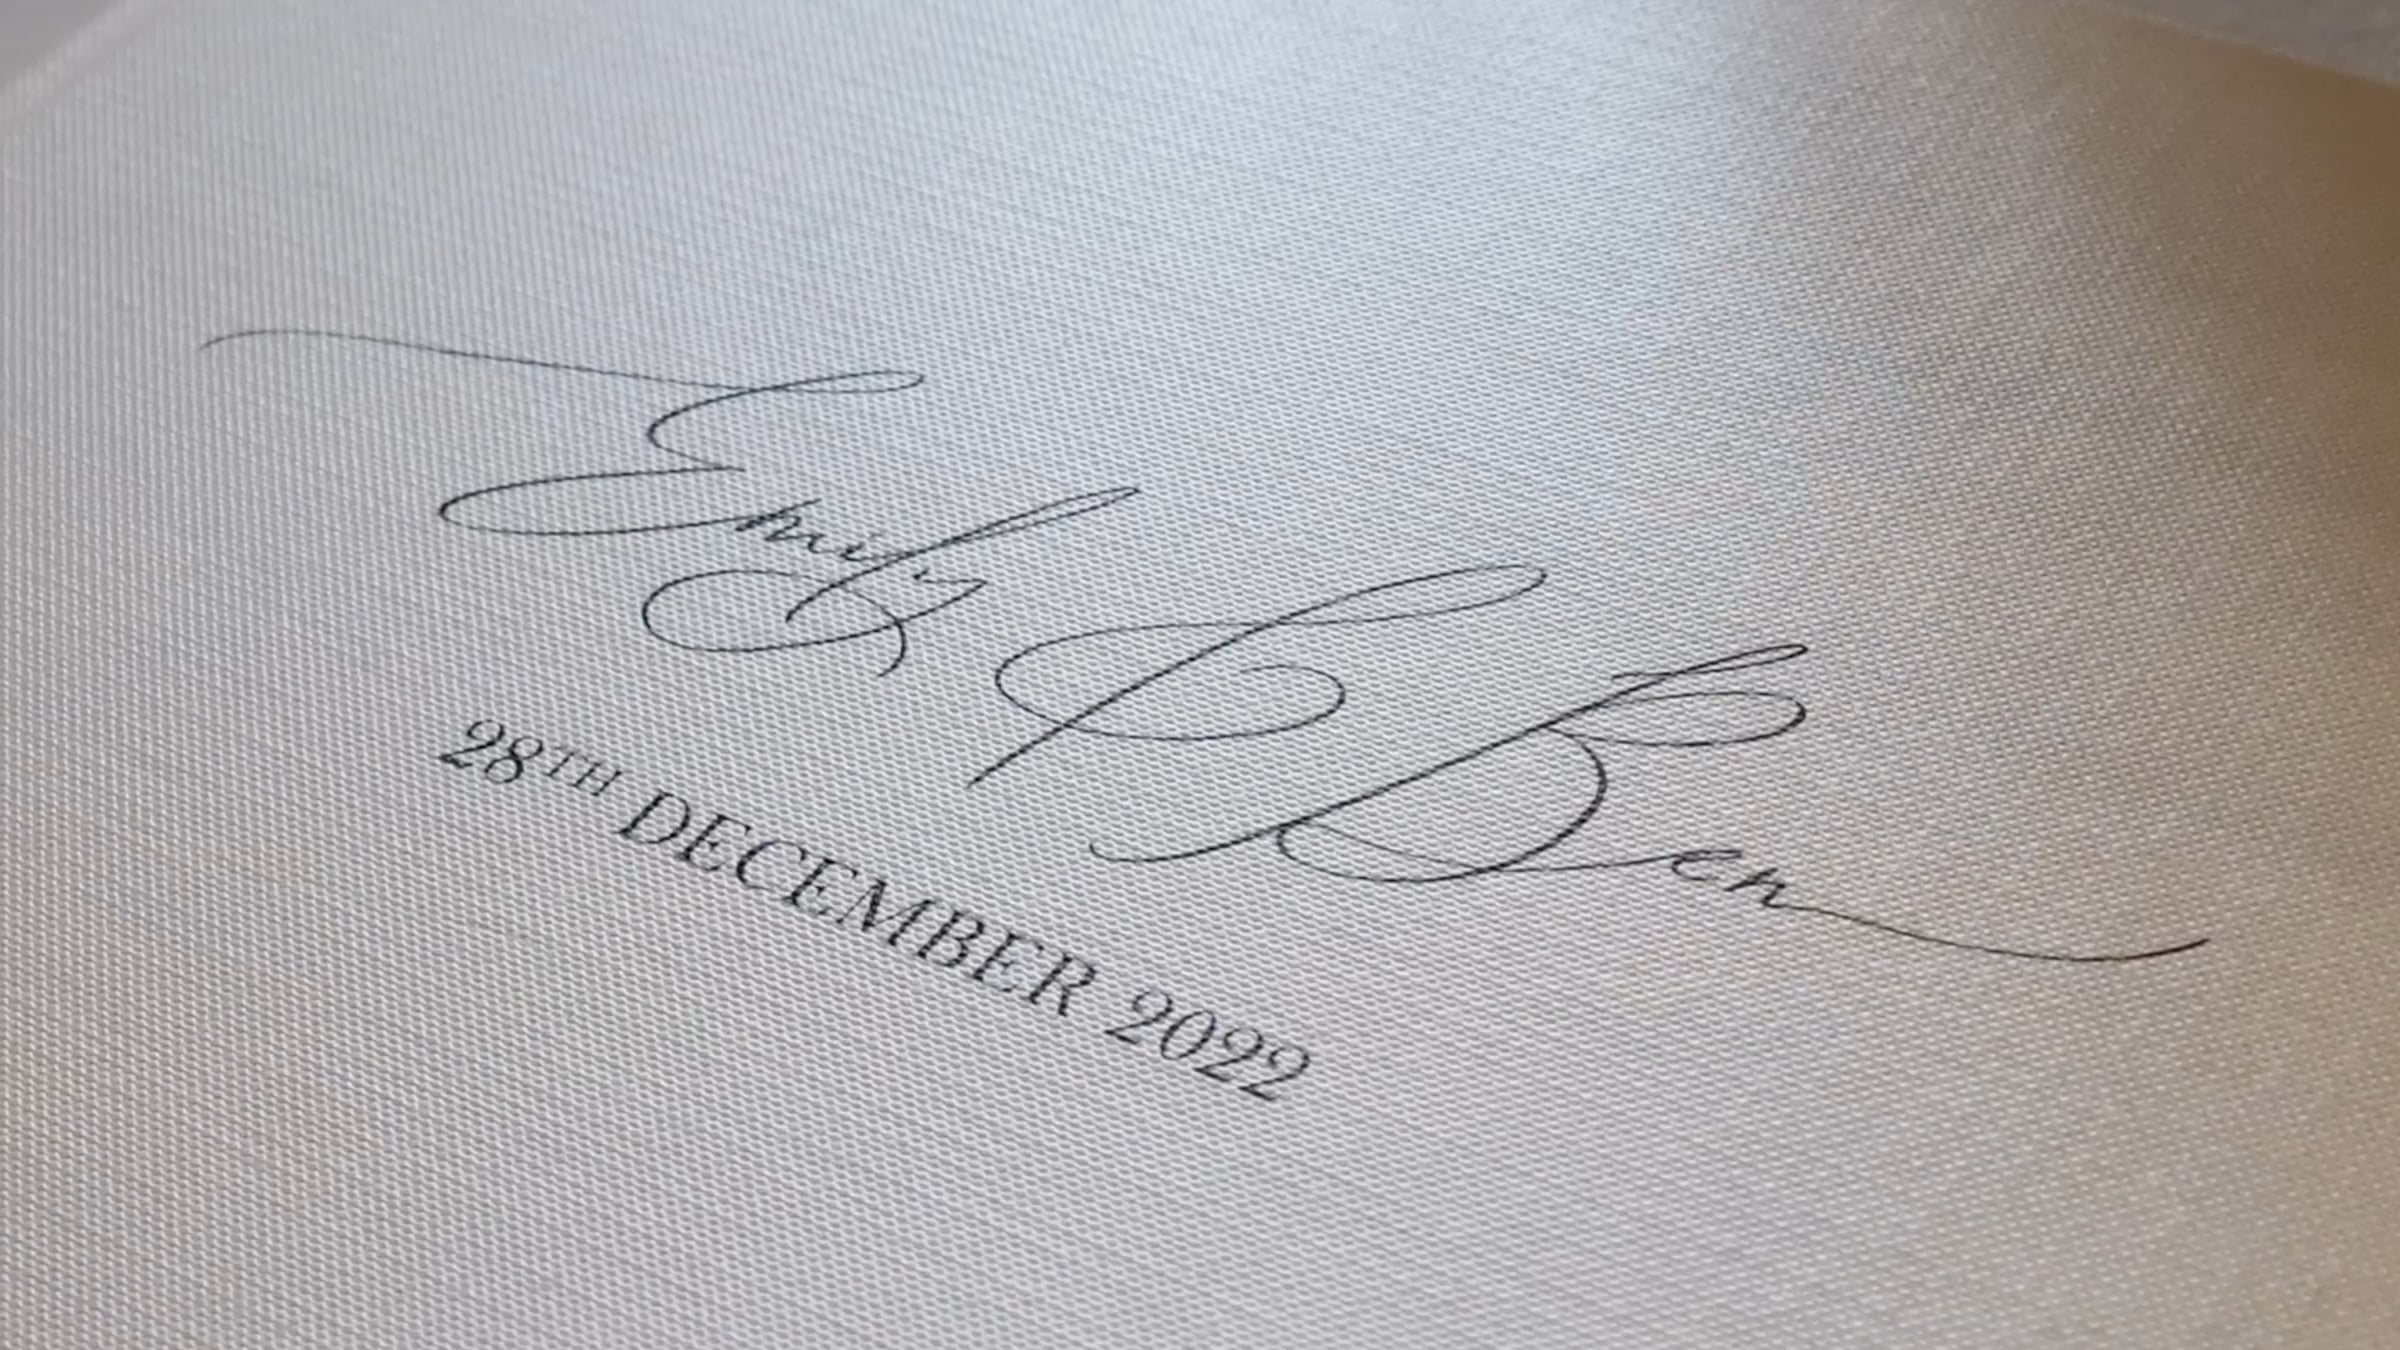 Emily & Ben
28TH DECEMBER 2022